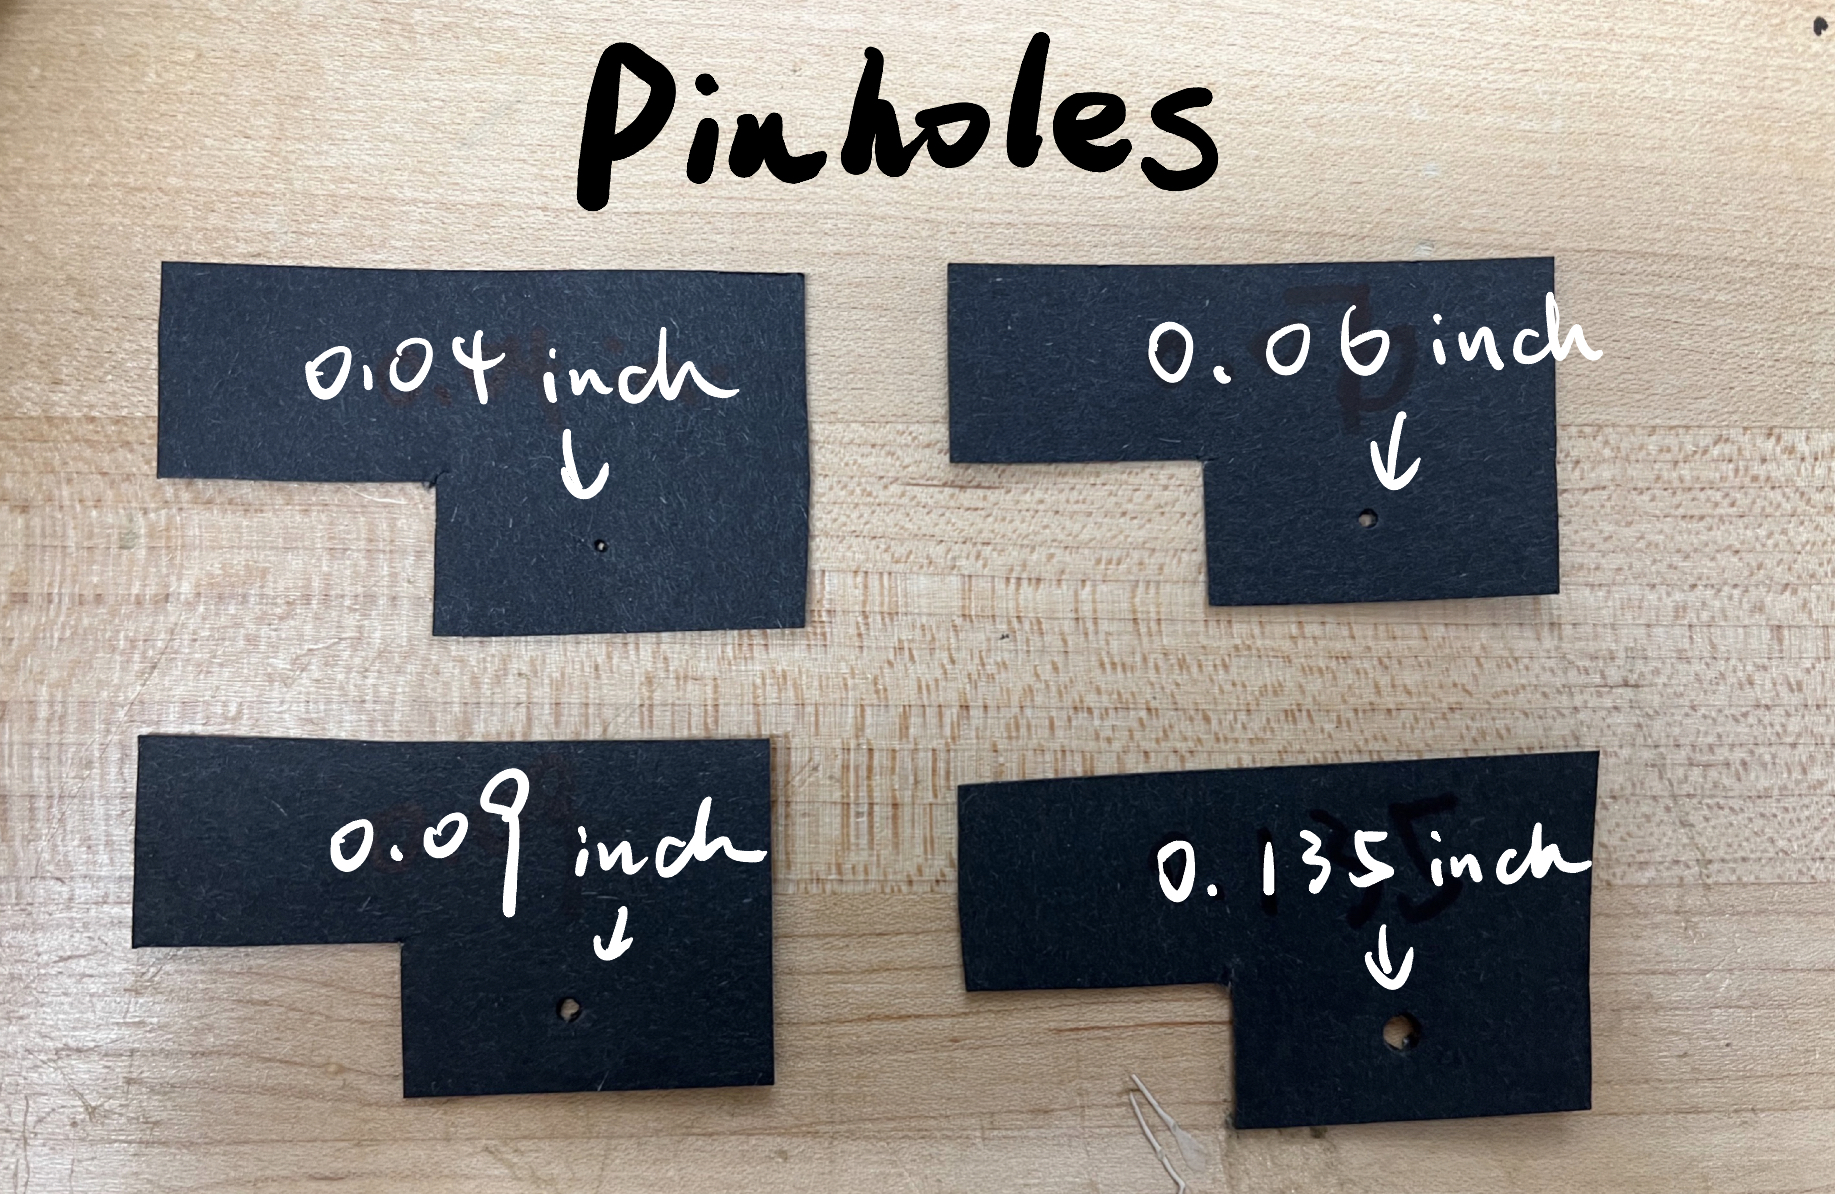 Pinholes
0.04 inch
0.06 inch
0.09 inch
0.135 inch